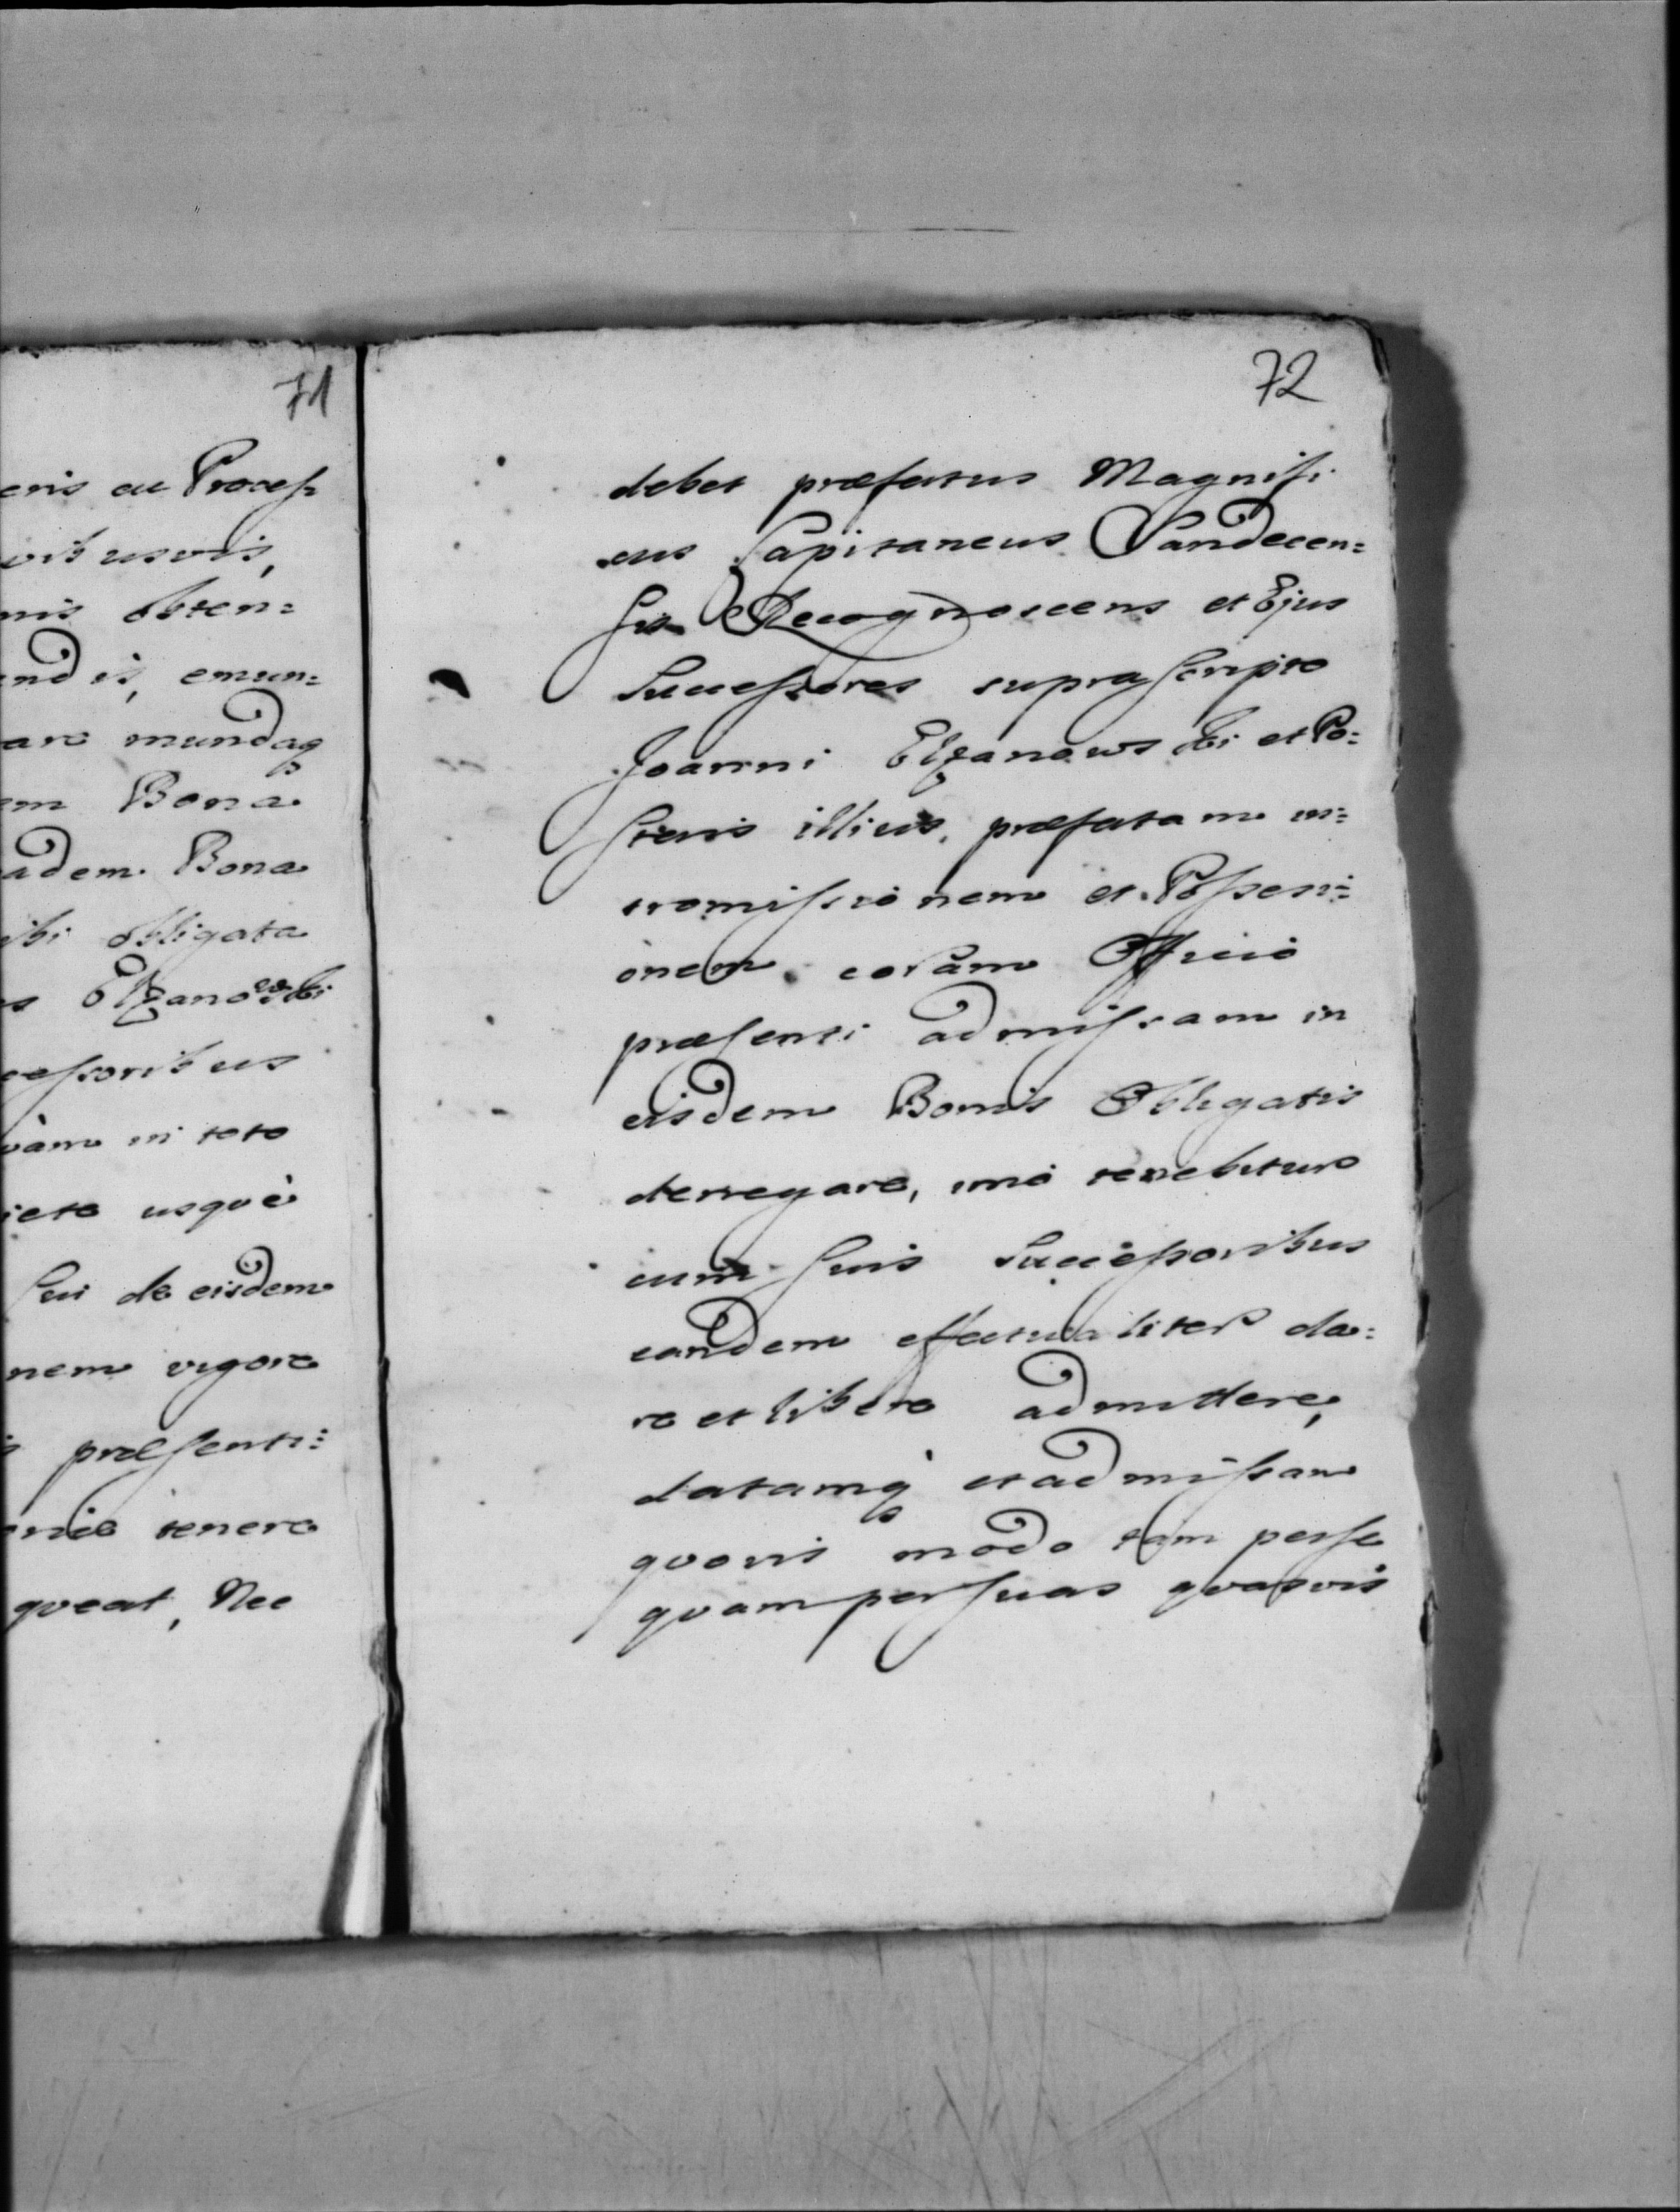 71
eris ac Process
vibusvis,
nis obten=
andis, emun=
are mundaq
em Bona
adem Bona
ibi obligata
s Elzanowski
cessoribus
vàm in toto
iete usquè
sui de eisdem
nem vigore
s præsenti=
tenere
qveat, Nec
72
debet præfatus Magnifi
cus Capitaneus Sandecen=
sis Recognoscens et Ejus
Successores suprascripto
Joanni Elzanowski et Po=
steris illius, præfatam in=
tromissionem et Possessi=
onem coràm Officio
præsenti admissam in
eisdem Bonis Obligatis
derregare, imò tenebitur
cum suis Successoribus
eandem effectualiter da=
re et libere admittere,
datamq et admissam
qvovis modo tam per se
qvam per suas qvasvis